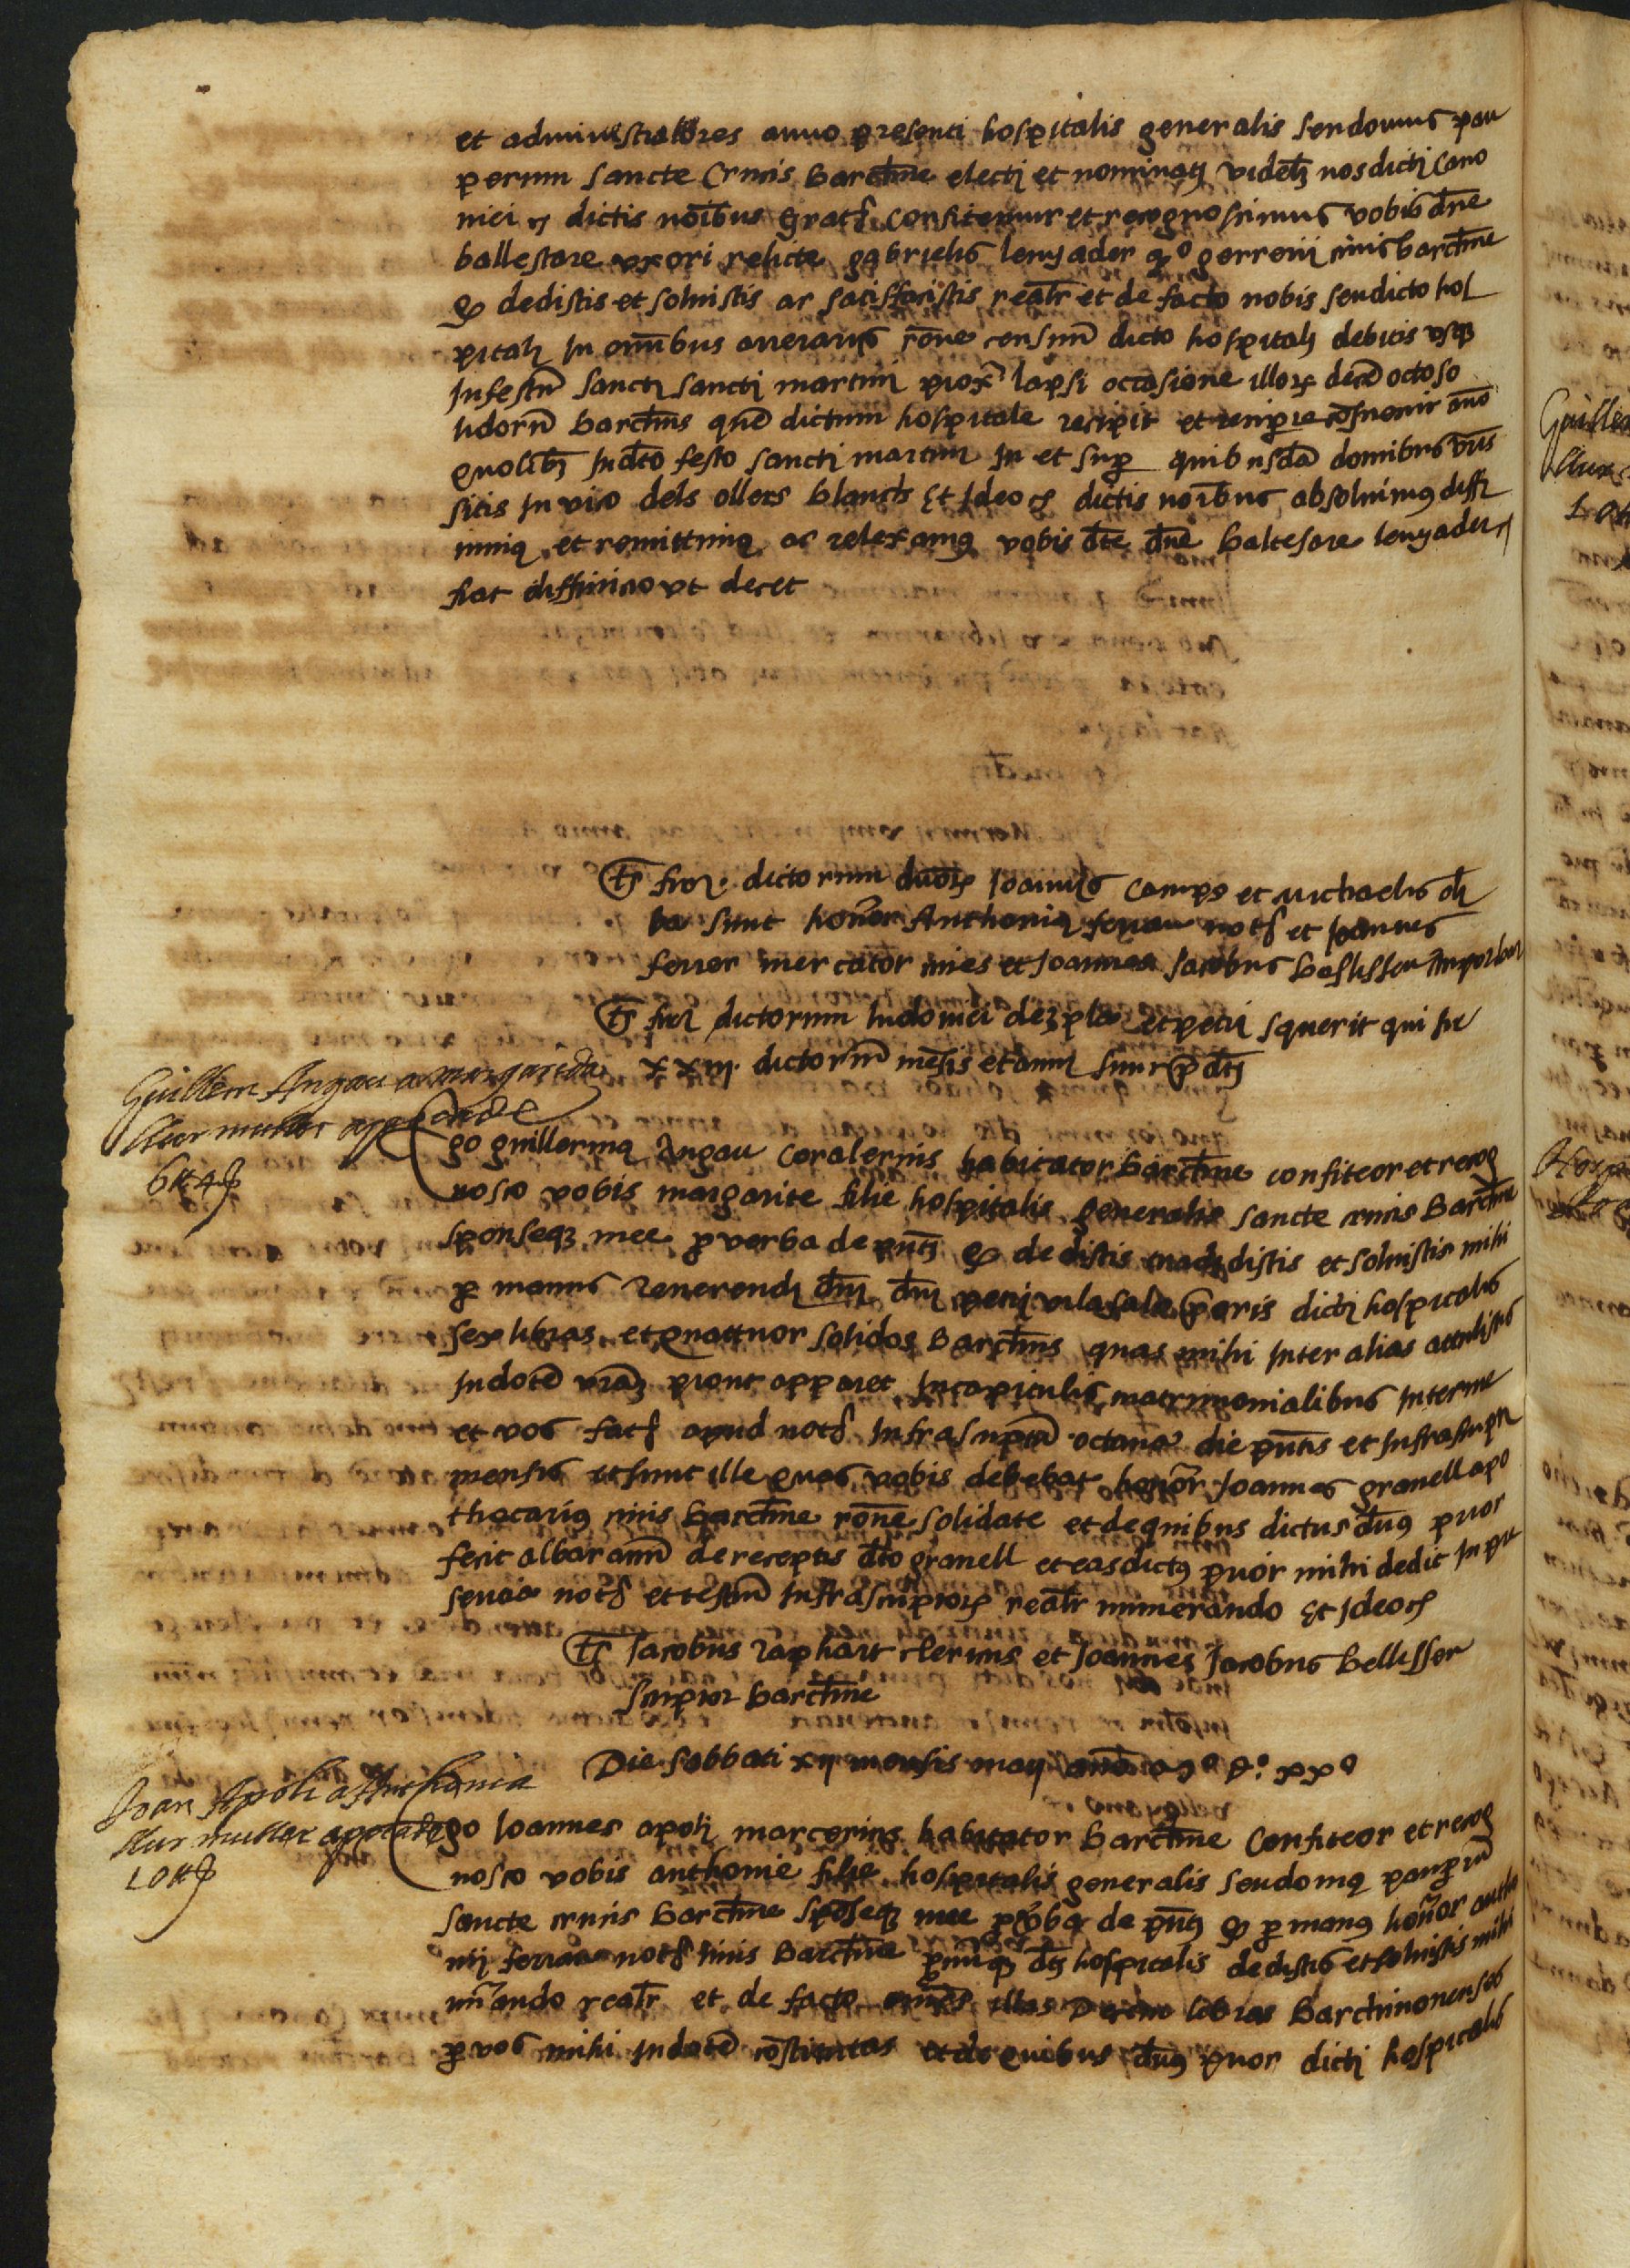 et administratores anno presenti hospitalis generalis seu domus pau
perum sancte Crucis barchne electi et nominati videlicet nos dicti cano
nici dictis noibus gratis confitemur et recognoscimus vobis dne
ballesare uxori relicte gabrielis lenyader qº gerrerii civis barchne
q dedistis et solvistis ac satisfecistis realr et de facto nobis seu dicto hos
pitali in omibus arreragiis rone censuum dicto hospitali debitis usq
in festum sancti sancti martini prox lapsi occasione illor dece octo so
lidorum barchns que dictum hospitale recipit et recipere consuevit ano
quolibet in dto festo sancti martini in et sup quibusda domibus vris
sitis in vico dels ollers blanchs Et ideo dictis noibus absolvimus diffi
nimus et remittimus ac relexamus vobis dte dne baltesare lenyader
fiat diffinicio ut decet
Ts firme dictorum duor Joannis camps et Michaelis
sunt honor Anthonius ferran not et Joannes
ferrer mercator cives et Joannes Jacobus bellisser scriptor bar
Ts firme dictorum ludovici dezpla et petri squerit qui fir
xxiii dictorum mesis et anni sunt pdti
Guillem Angau a margarida
sua muller appocha de
6 ℔ 4 ß
Ego guillermus Angau coralerius habitator barchne confiteor et recog
nosco vobis margarite filie hospitalis generalis sancte crucis Barchne
sponseq mee p verba de pnti q dedistis tradidistis et solvistis mihi
p manus Reverendi dni dni petri vilasala prioris dicti hospitalis
sex libras et quattuor solidos barchns quas mihi inter alias attulistis
in dote vram prout apparet in capitulis matrimonialibus inter me
et vos factis apud not infrascriptum octava die pntis et infrascripti
mensis et sunt ille quas vobis debebat honor Joannes granell apo
thecarius civis barchne rone solidate et de quibus dictus dnus prior
fecit albaranum de receptis dto granell et eas dictus prior mihi dedit in pre
sencia not et testium infrascriptor realr numerando Et ideo
Ts Jacobus raphart clericus et Joannes Jacobus bellisser
scriptor barchne
Die sabbati xii mensis maii anno Mº Dº xxº
Joan Apoli a Anthonia
sua muller appocha de
10 ℔ ß
Ego Joannes apoli mercerius habitator barchne confiteor et recog
nosco vobis anthonie filie hospitalis generalis seu domus pauperum
sancte crucis barchne sponseq mee p verba de pnti q p manus honor antho
nii ferran not civis barchne dti hospitalis dedistis et solvistis mihi
nurando realr et de facto omnes illas decem libras barchinonenses
p vos mihi in dote costitutas et de quibus dnus prior dicti hospitalis